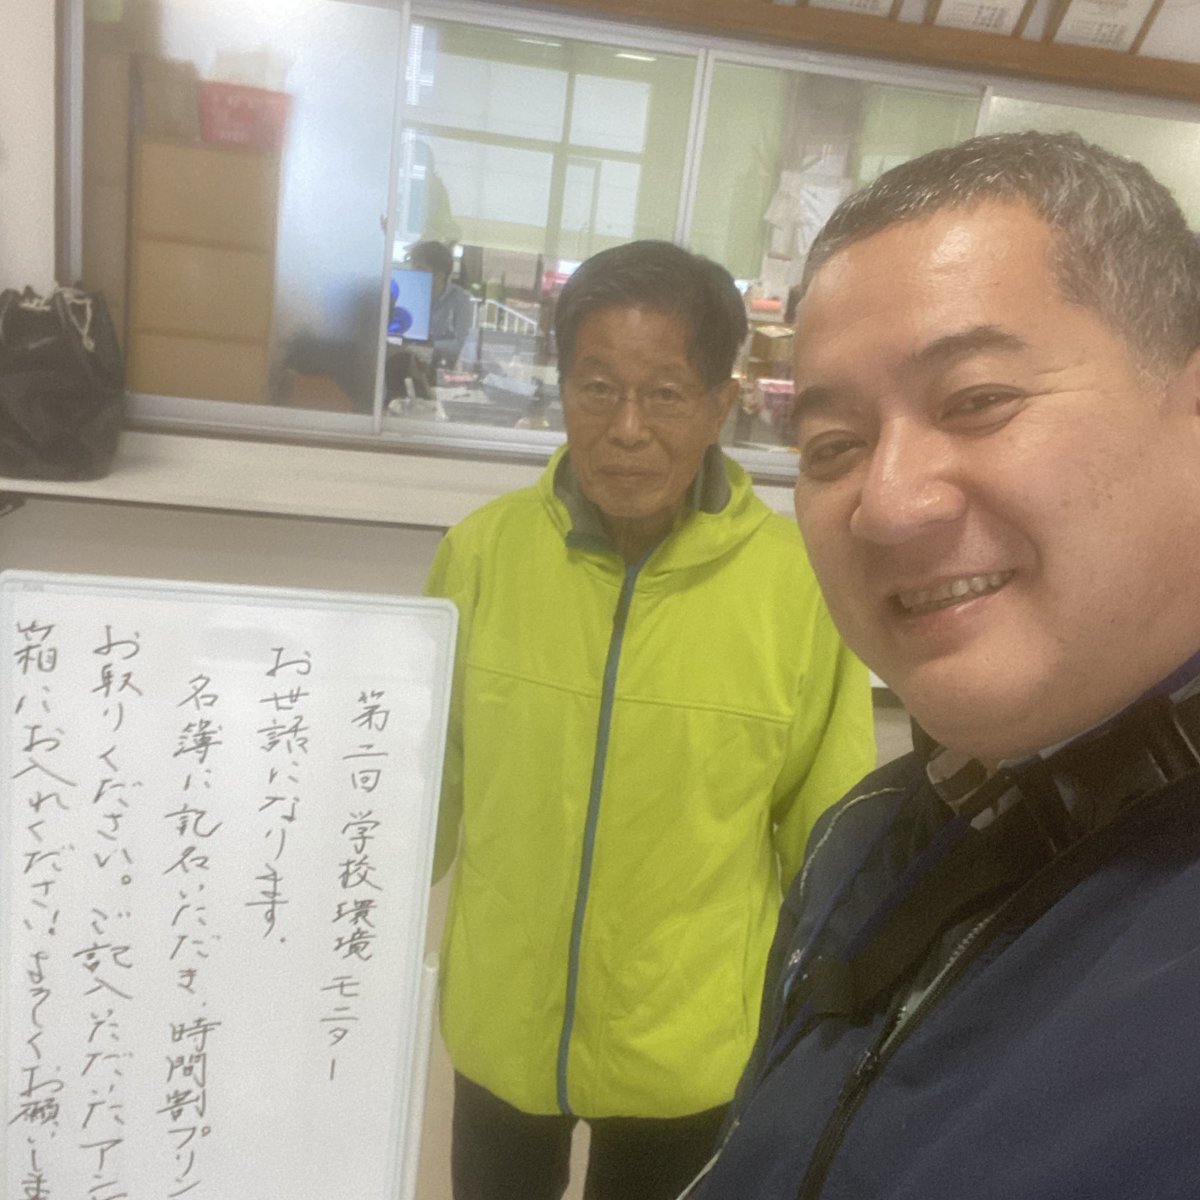 第二回 学校環境モニター
お世話になります.
名簿に記名いただき、時間割プリン
お取りください。ご記入いただいたアン
箱にお入れください!よろしくお願いしま